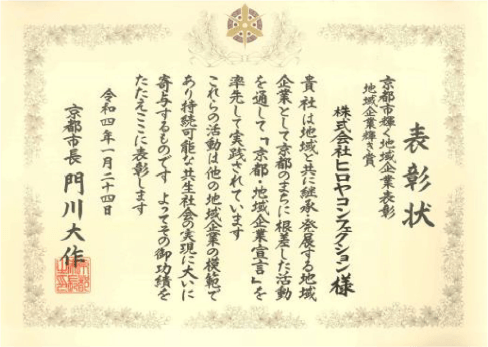 表彰状
京都市輝く地域企業表彰
地域企業輝き賞
株式会社ヒロヤコンフェクション様
貴社は地域と共に継承・発展する地域
企業として京都のまちに根差した活動
を通して、「京都・地域企業宣言」を
率先して実践されています
これらの活動は他の地域企業の模範で
あり持続可能な共生社会の実現に大いに
寄与するものです よってその御功績を
たたえここに表彰します
令和四年一月二十四日
京都市長 門川大作